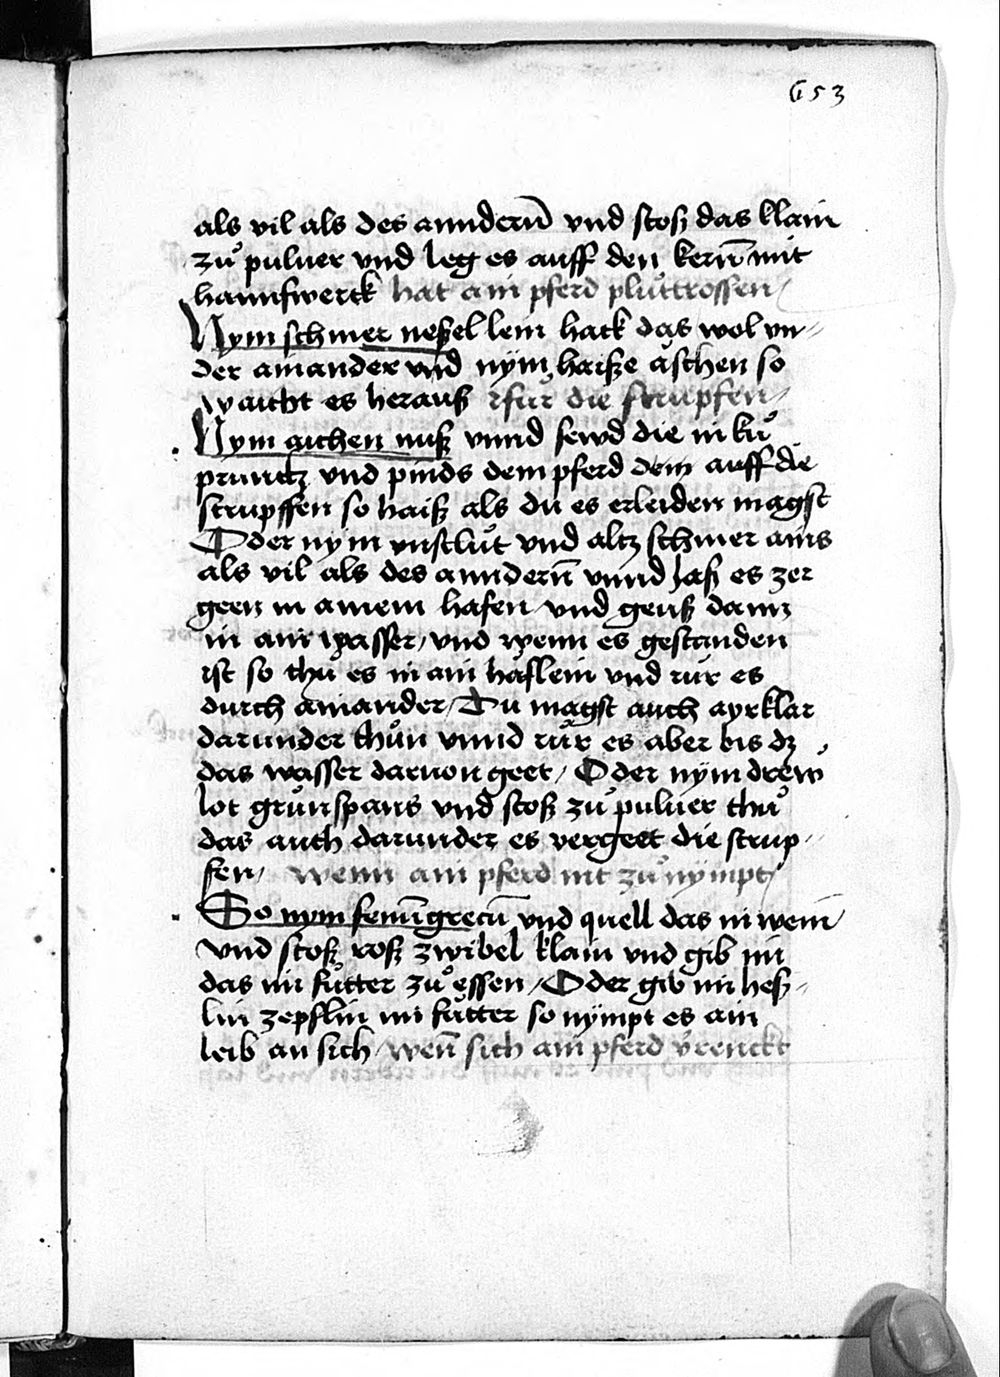 653
als vil als des annderñ vnd stosz das klain
zuͦ puluer vnd leg es auff den kerñ mit
hannfwerck hat ain pferd pluͦttrossen
Nym schmer nessel lein hack das wol vn⸗
der ainander vnd nÿm haisze äschen so
waicht es herausz ꝛfür die strupfen
Nym aichen nusz vnnd sewd die in kuͦ
pruntz vnd pinds dem pferd dem auff die
strupffen so haisz als du es erleiden magst
Oder nym vnslut vnd altz schmer ains
als vil als des annderñ vnnd lasz es zer
geen in ainem hafen vnd geusz dann
in ain wasser / vnd wenn es gestanden
ist so thuͦ es in ain häflein vnd rür es
durch ainander / Du magst auch ayrklar
darunder thuͦn vnnd rür es aber bis dz
das wasser daruon geet / Oder nÿm drew
lot gruͤnspans vnd stosz zuͦ puluer thuͦ
das auch darunder es vergeet die strup⸗
fen / wenn ain pferd nit zuͦ nÿmpt
So nym fenūgrecū vnd quell das in wein
vnd stosz rosz zwibel klain vnd gib im
das im fuͦtter zuͦ essen / Oder gib im hesz⸗
lin zepflin im fuͦtter so nÿmpt es ain
leib an sich / weñ sich ain pferd v̄renckt